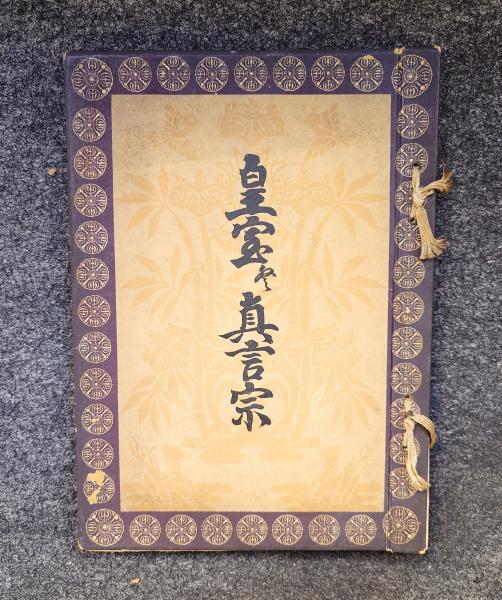 皇室と真言宗